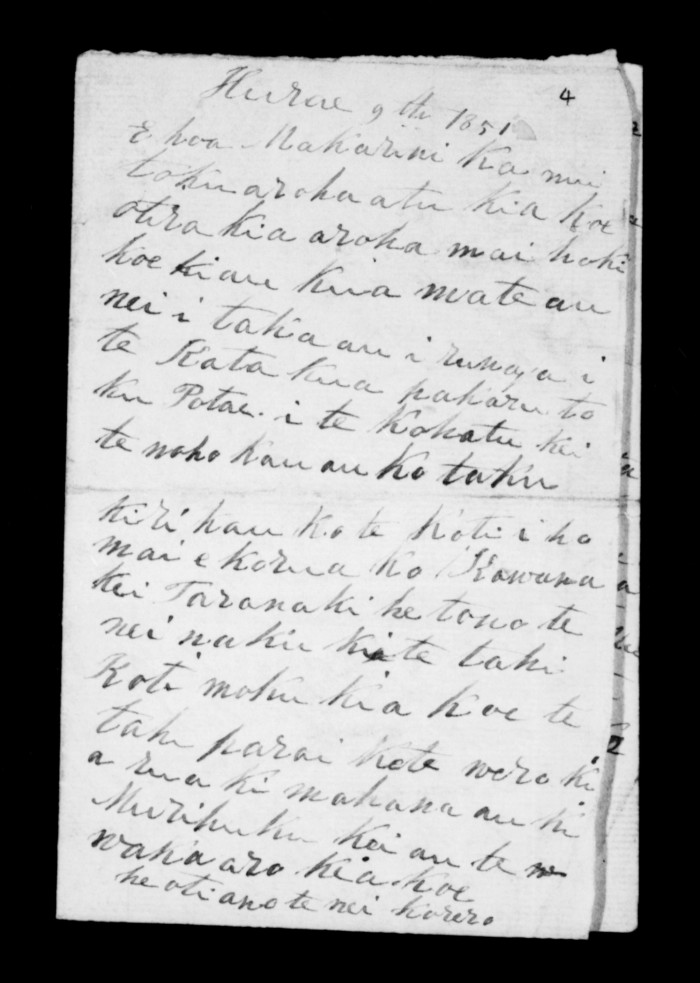 Hurae 9 th 1851
4
E hoa Makarini Ka nui
toku aroha atu Kia Koe
otira Kia aroha mai hoki
koe kiau Kua mate au
nei i taka au i runga i
te Kata kua pakaru to
ku Potae. i te Kohatu kei
te noho Kau au Ko taku
kiri kau Ko te Koti i ho
mai e korua Ko Kawana
kei Taranaki he tono te
nei naku kite tahi
Koti moku kia koe te
tahi parai kete wero ki
a rua ki mahana au ki
Murihuku Kei au te w
waka aro kia koe
he oti ano te nei korero